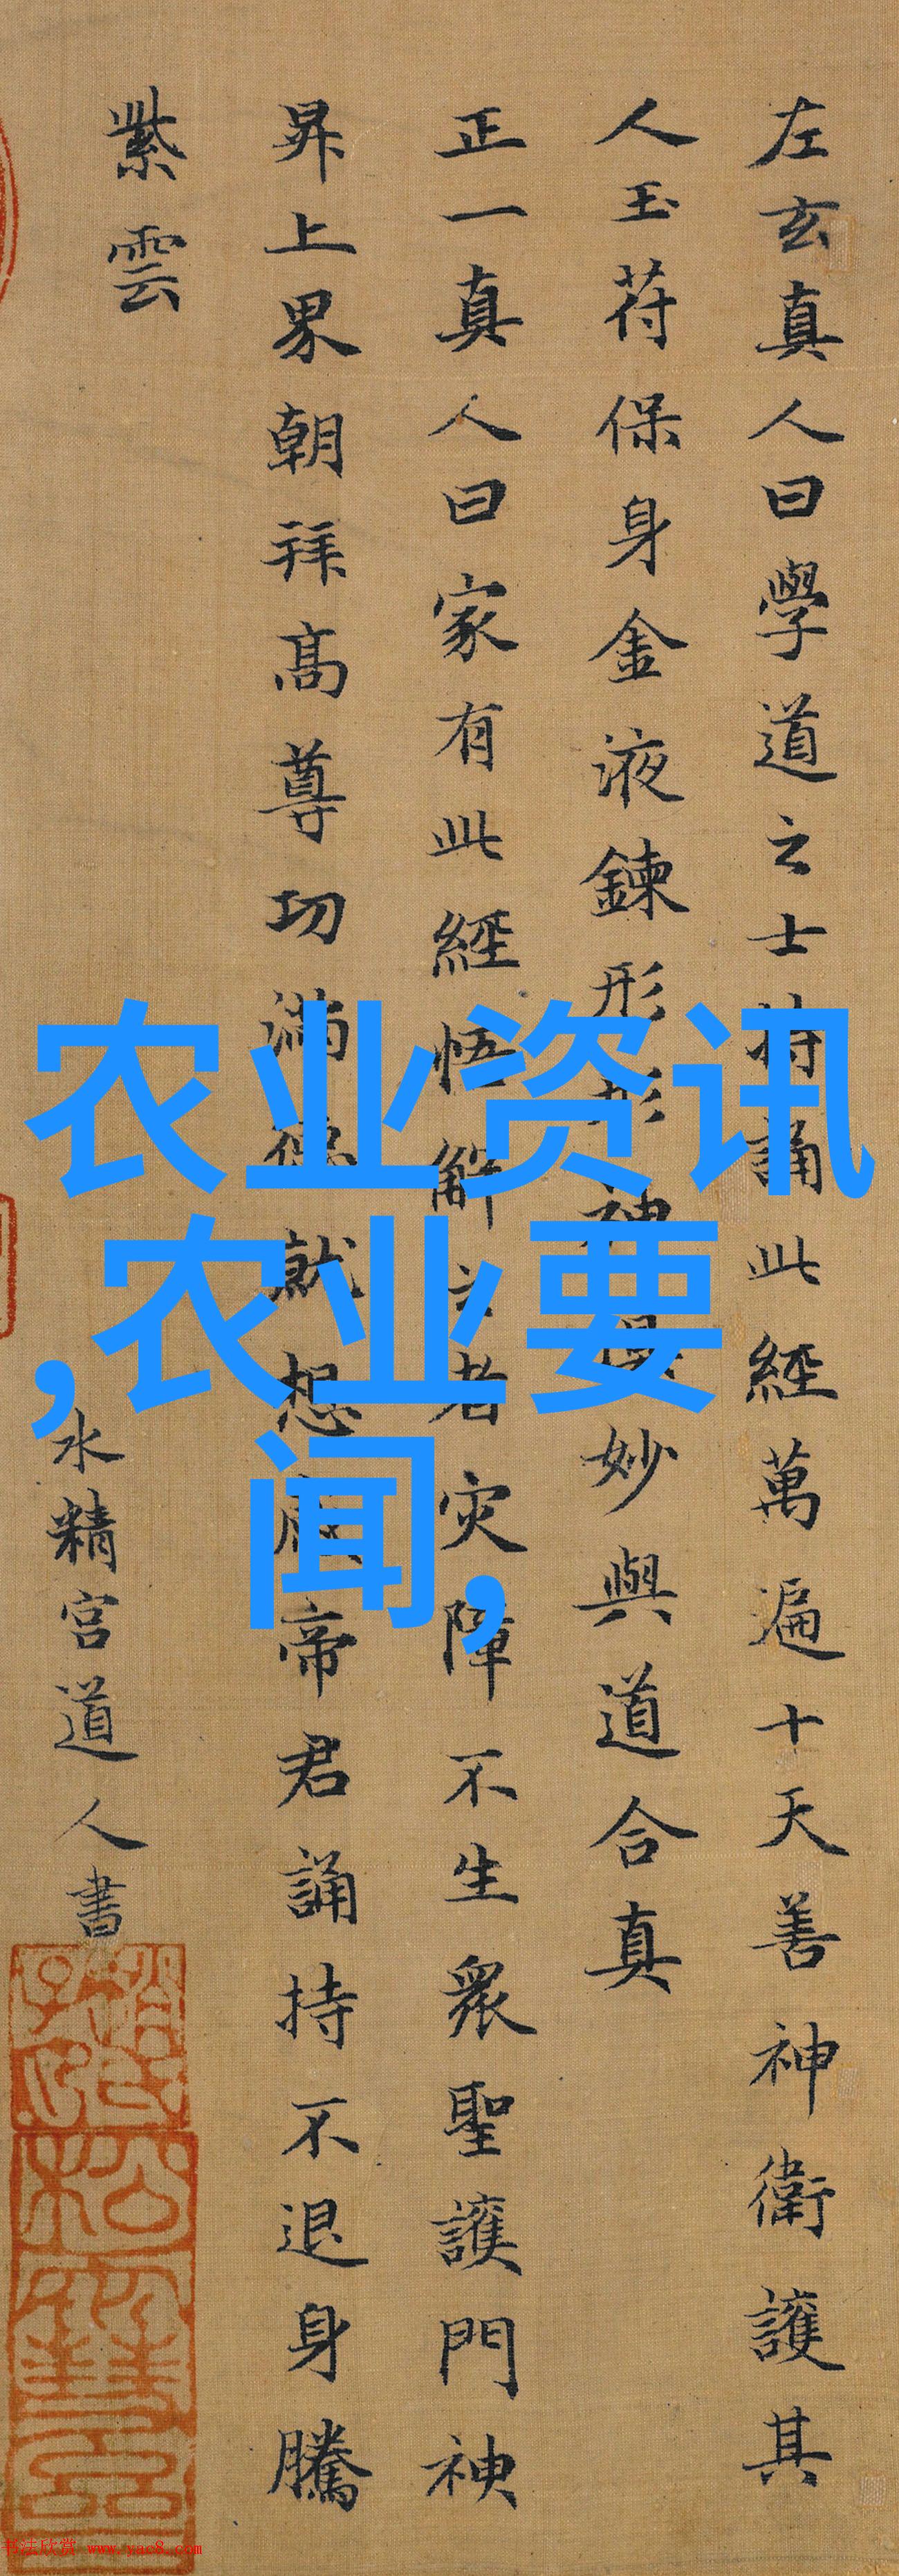 左玄真人曰學道之士持誦此經萬遍十天善神衛護其
人玉苻保身金液鍊形形神俱妙與道合真
正一真人曰家有此經悟解之者灾障不生衆聖護門神
昇上界朝拜高尊功滿德就想感帝君誦持不退身騰
紫雲
水精宮道人書
农业资讯
,农业要
闻,
书法欣赏 www.yac8.com